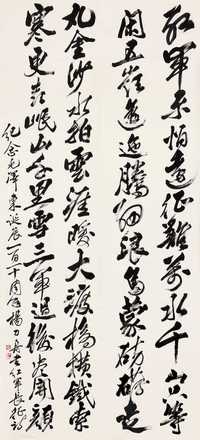 紅軍不怕遠征難萬水千山只等
閑五嶺逶迤騰細浪烏蒙磅礴走
丸金沙水拍雲崖暖大渡橋橫鐵索
寒更喜岷山千里雪三軍過後盡開顏
紀念毛澤東誕辰一百一十周年楊力舟書紅軍長征詩